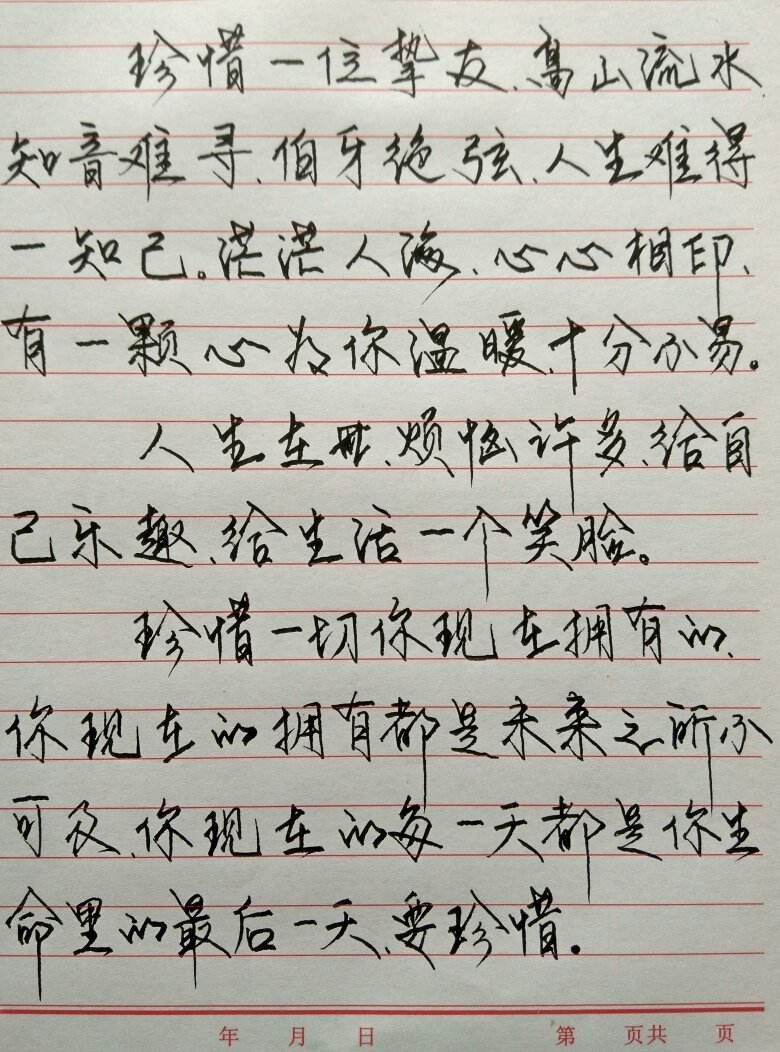 珍惜一位挚友、高山流水
知音难寻、伯牙绝弦、人生难得
一知己。茫茫人海、心心相印、
有一颗心为你温暖、十分不易。
人生在世、烦恼许多、给自
己乐趣、给生活一个笑脸。
珍惜一切你现在拥有的、
你现在的拥有都是未来之所不
可及、你现在的每一天都是你生
命里的最后一天、要珍惜。
年 月 日 第 页共 页